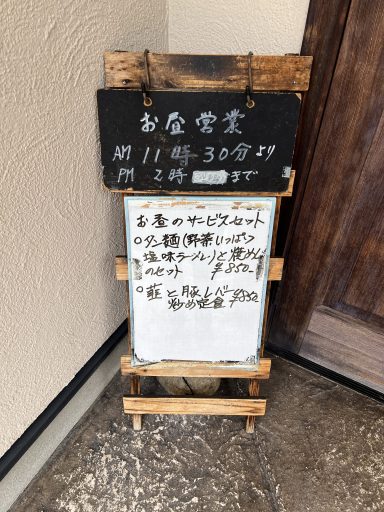 お昼営業
AM 11時30分より
PM 2時 まで
お昼のサービスセット
○タン麺(野菜いっぱい
塩味ラーメン)と焼めし
のセット ¥850-
○韮と豚レバー ¥850-
炒め定食